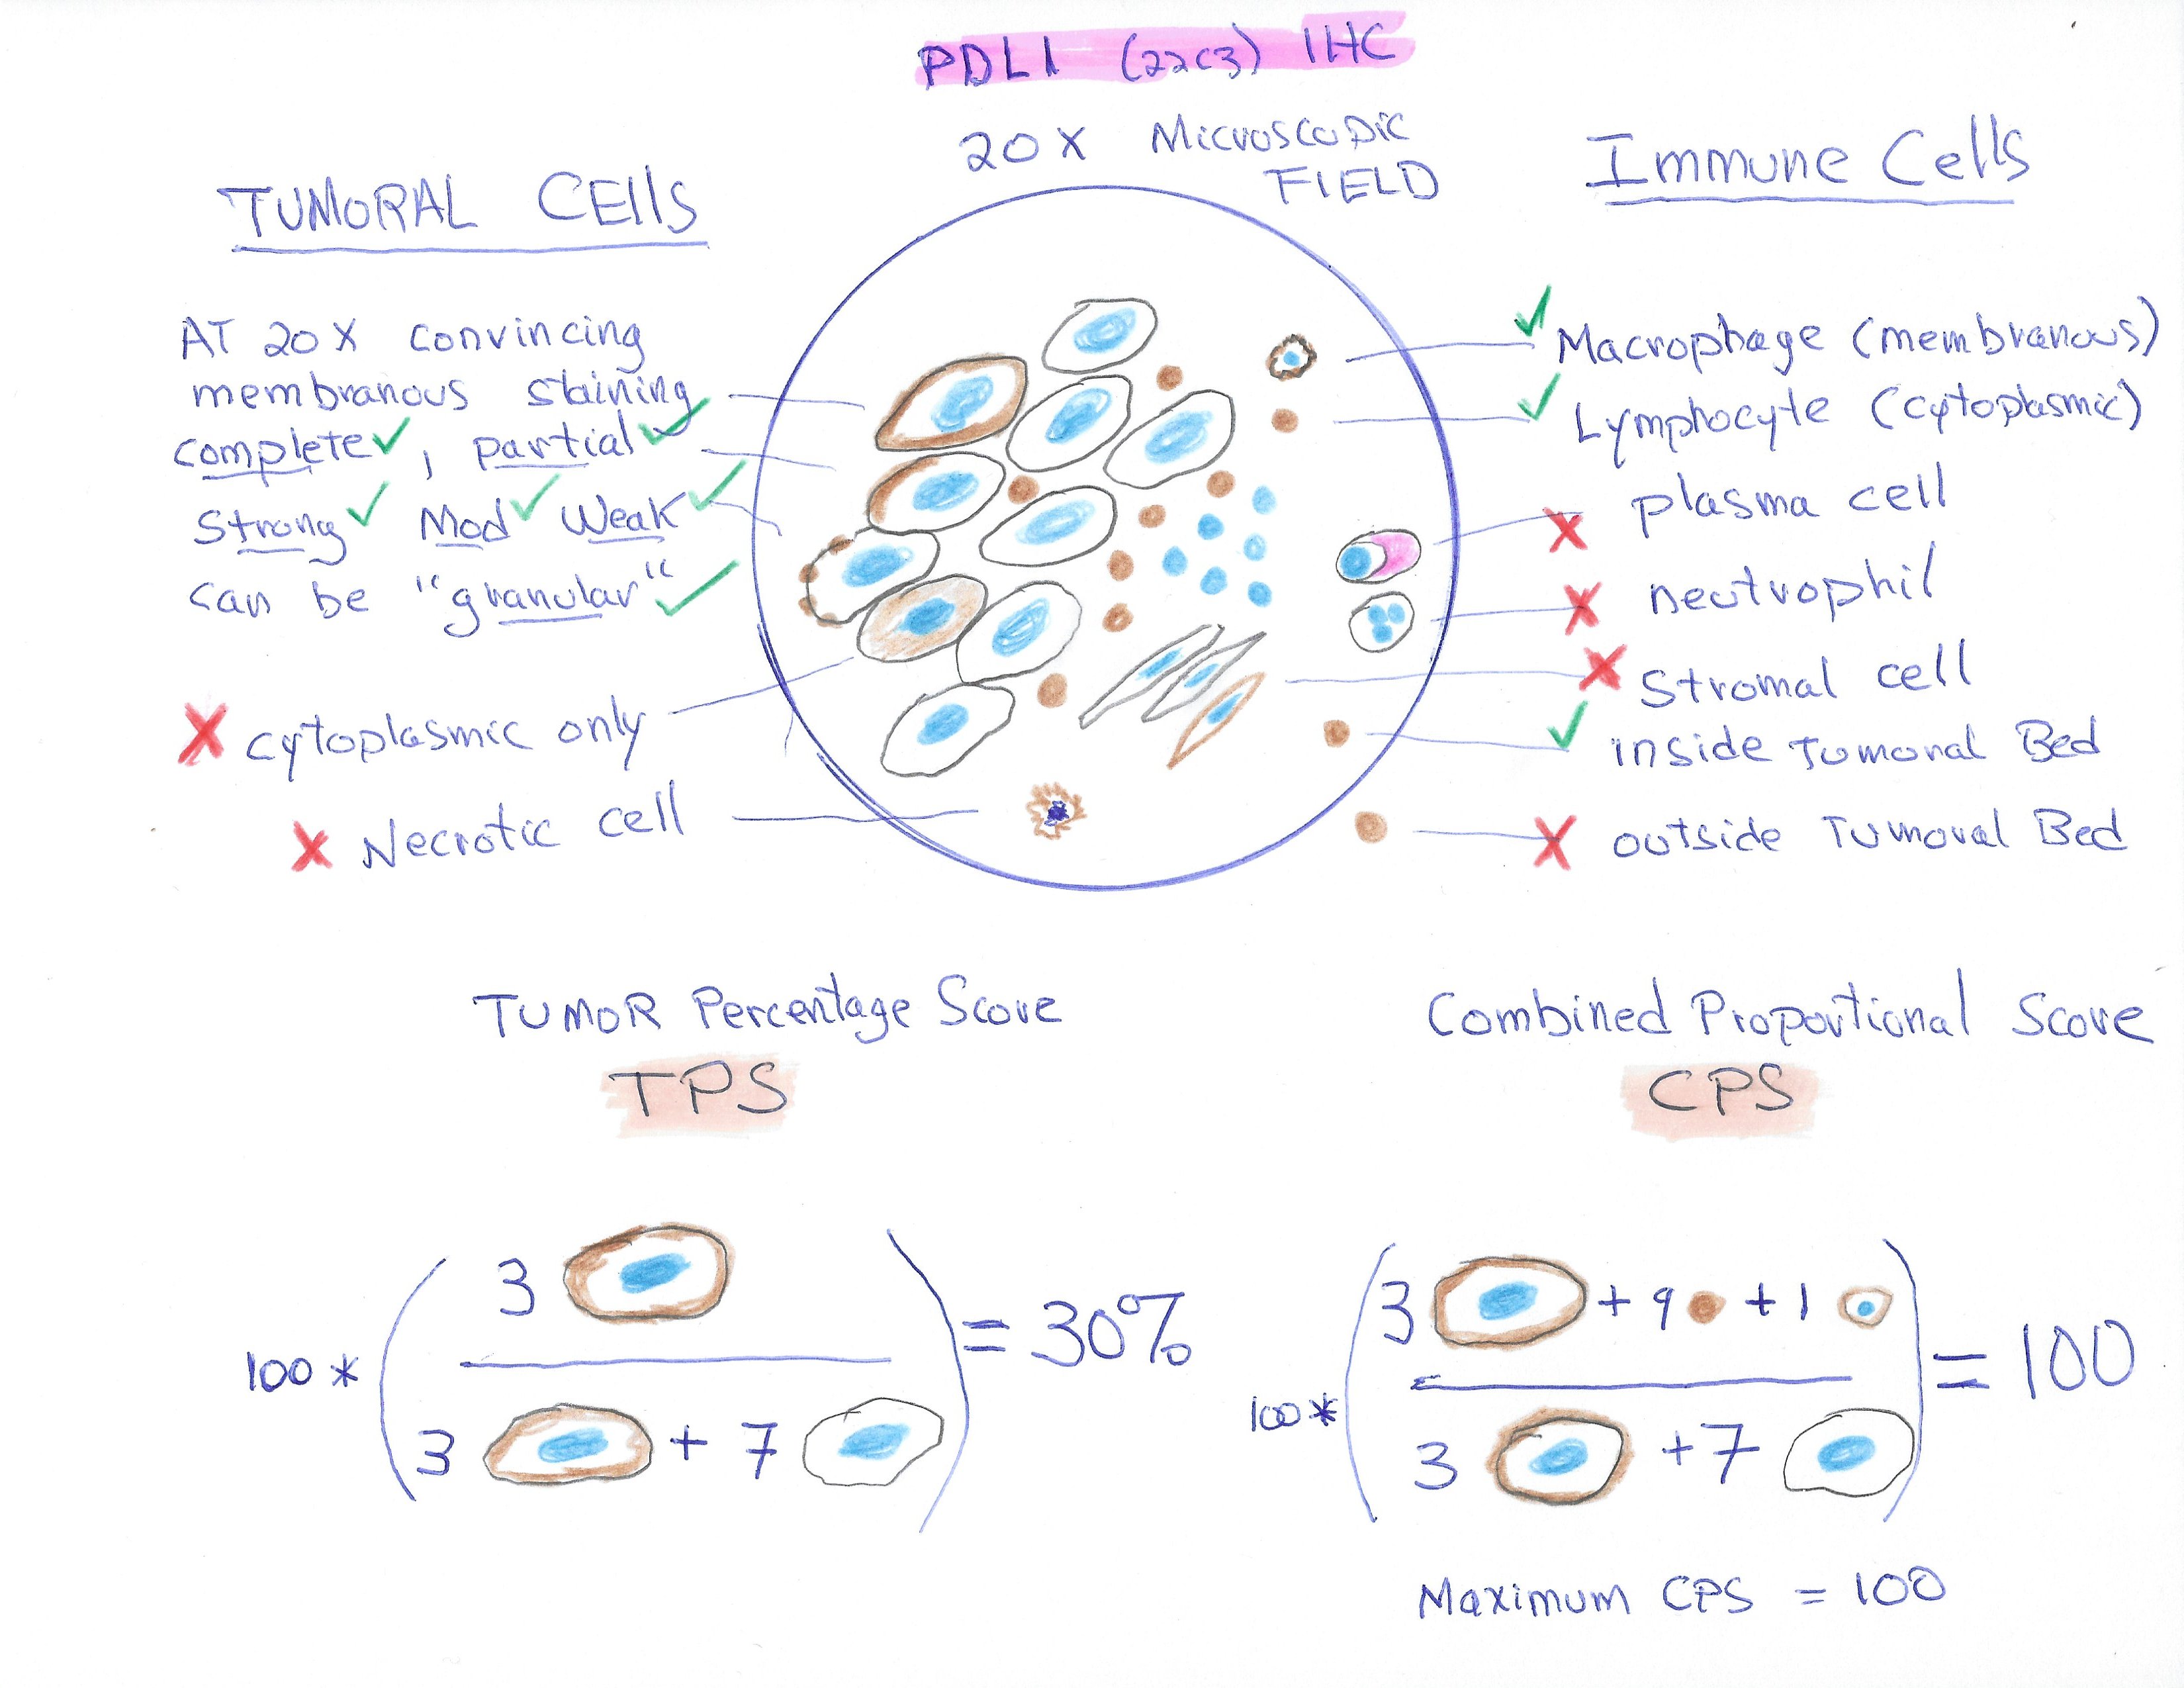 PDL1 (22C3) IHC
20 X Microscopic
FIELD
TUMORAL CElls
AT 20 X convincing
membranous staining
complete ✓, partial ✓
Strong ✓ Mod ✓ Weak ✓
can be "granular" ✓
X cytoplasmic only
X Necrotic cell
Immune Cells
✓ Macrophage (membranous)
✓ Lymphocyte (cytoplasmic)
X plasma cell
X neutrophil
X Stromal cell
✓ inside Tumoral Bed
X outside Tumoral Bed
TUMOR Percentage Score
TPS
100 * ( 3
3 + 7 ) = 30%
Combined Proportional Score
CPS
100 * ( 3 + 9 + 1
3 + 7 ) = 100
Maximum CPS = 100